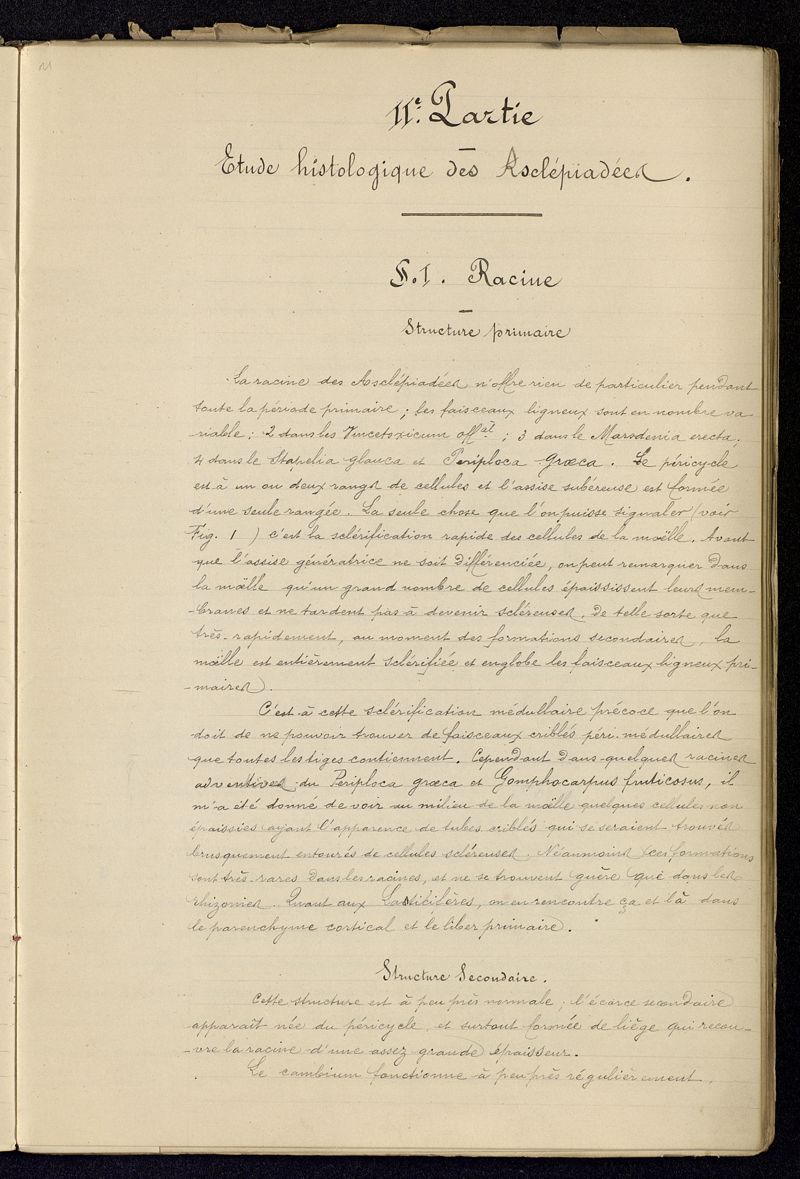 21
IIe. Partie
Etude histologique des Asclépiadées.
§.I. Racine
Structure primaire
La racine des Asclépiadées n'offre rien de particulier pendant
toute la période primaire ; les faisceaux ligneux sont en nombre va
riable : 2 dans les Vincetoxicum offal ; 3 dans le Marsdenia erecta,
4 dans le Stapelia glauca et Periploca Græca. Le péricycle
est à un ou deux rangs de cellules et l'assise subéreuse est formée
d'une seule rangée. La seule chose que l'on puisse signaler (voir
Fig. 1 ) c'est la sclérification rapide des cellules de la moëlle. Avant
que l'assise génératrice ne soit différenciée, on peut remarquer dans
la moëlle qu'un grand nombre de cellules épaississent leurs mem-
-branes et ne tardent pas à devenir scléreuses. De telle sorte que
très-rapidement, au moment des formations secondaires, la
moëlle est entièrement sclérifiée et englobe les faisceaux ligneux pri-
-maires).
C'est à cette sclérification médullaire précoce que l'on
doit de ne pouvoir trouver de faisceaux criblés péri-médullaires
que toutes les tiges contiennent. Cependant dans quelques racines
adventives du Periploca græca et Gomphocarpus fruticosus, il
m'a été donné de voir au milieu de la moëlle quelques cellules non
épaissies ayant l'apparence de tubes criblés qui se seraient trouvés
brusquement entourés de cellules scléreuses. Néanmoins (ces formations
sont très-rares dans les racines, et ne se trouvent guère que dans les
rhizomes. Quant aux Lasticifères, on en rencontre ça et là dans
le parenchyme cortical et le liber primaire.
Structure Secondaire.
Cette structure est à peu près normale ; l'écorce secondaire
apparaît née du péricycle, et surtout formée de liège qui recou-
-vre la racine d'une assez grande épaisseur.
Le cambium fonctionne à peu près régulièrement,